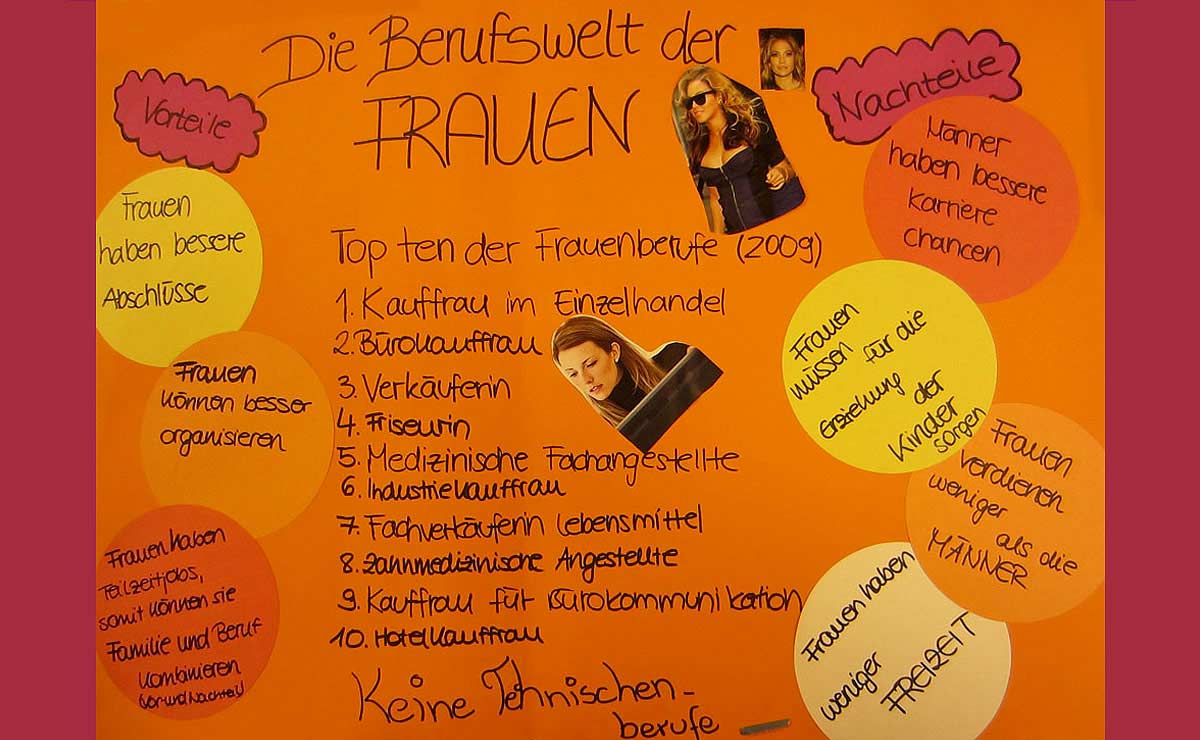 Die Berufswelt der
FRAUEN
Vorteile
Frauen
haben bessere
Abschlüsse
Frauen
können besser
organisieren
Frauen haben
Teilzeitjobs,
somit können sie
Familie und Beruf
kombinieren
(Vor- und Nachteil)
Top ten der Frauenberufe (2009)
1. Kauffrau im Einzelhandel
2. Bürokauffrau
3. Verkäuferin
4. Friseurin
5. Medizinische Fachangestellte
6. Industriekauffrau
7. Fachverkäuferin Lebensmittel
8. Zahnmedizinische Angestellte
9. Kauffrau für Bürokommunikation
10. Hotelkauffrau
Keine Tehnischen-
berufe
Nachteile
Männer
haben bessere
karriere
chancen
Frauen
müssen für die
Erziehung der
Kinder
sorgen
Frauen
verdienen
weniger
als die
MÄNNER
Frauen haben
weniger
FREIZEIT